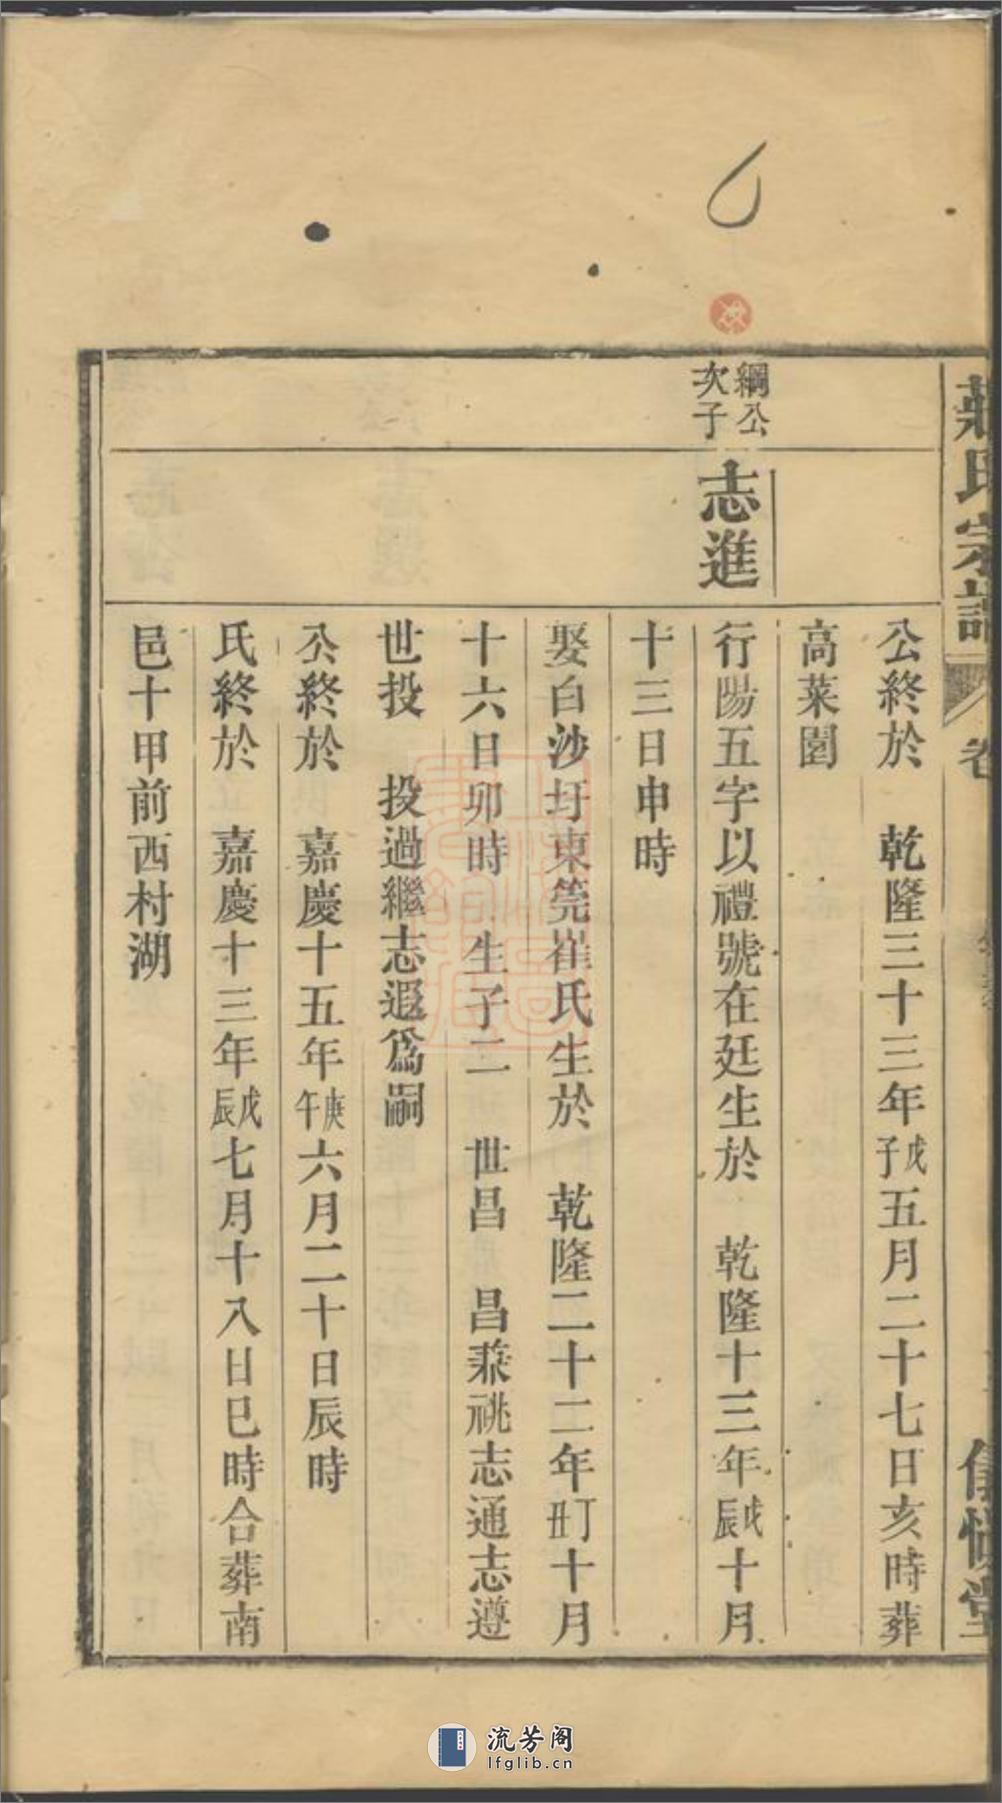 莊氏宗譜
卷
公終於　乾隆三十三年戊子五月二十七日亥時葬
高菜園
綱公次子
志進
行陽五字以禮號在廷生於　乾隆十三年戊辰十月
十三日申時
娶白沙圩東筦崔氏生於　乾隆二十二年丁丑十月
十六日卯時　生子二　世昌　昌兼祧志通志遵
世投　投過繼志遐爲嗣
公終於　嘉慶十五年庚午六月二十日辰時
氏終於　嘉慶十三年戊辰七月十八日巳時合葬南
邑十甲前西村湖
流芳阁
lfglib.cn